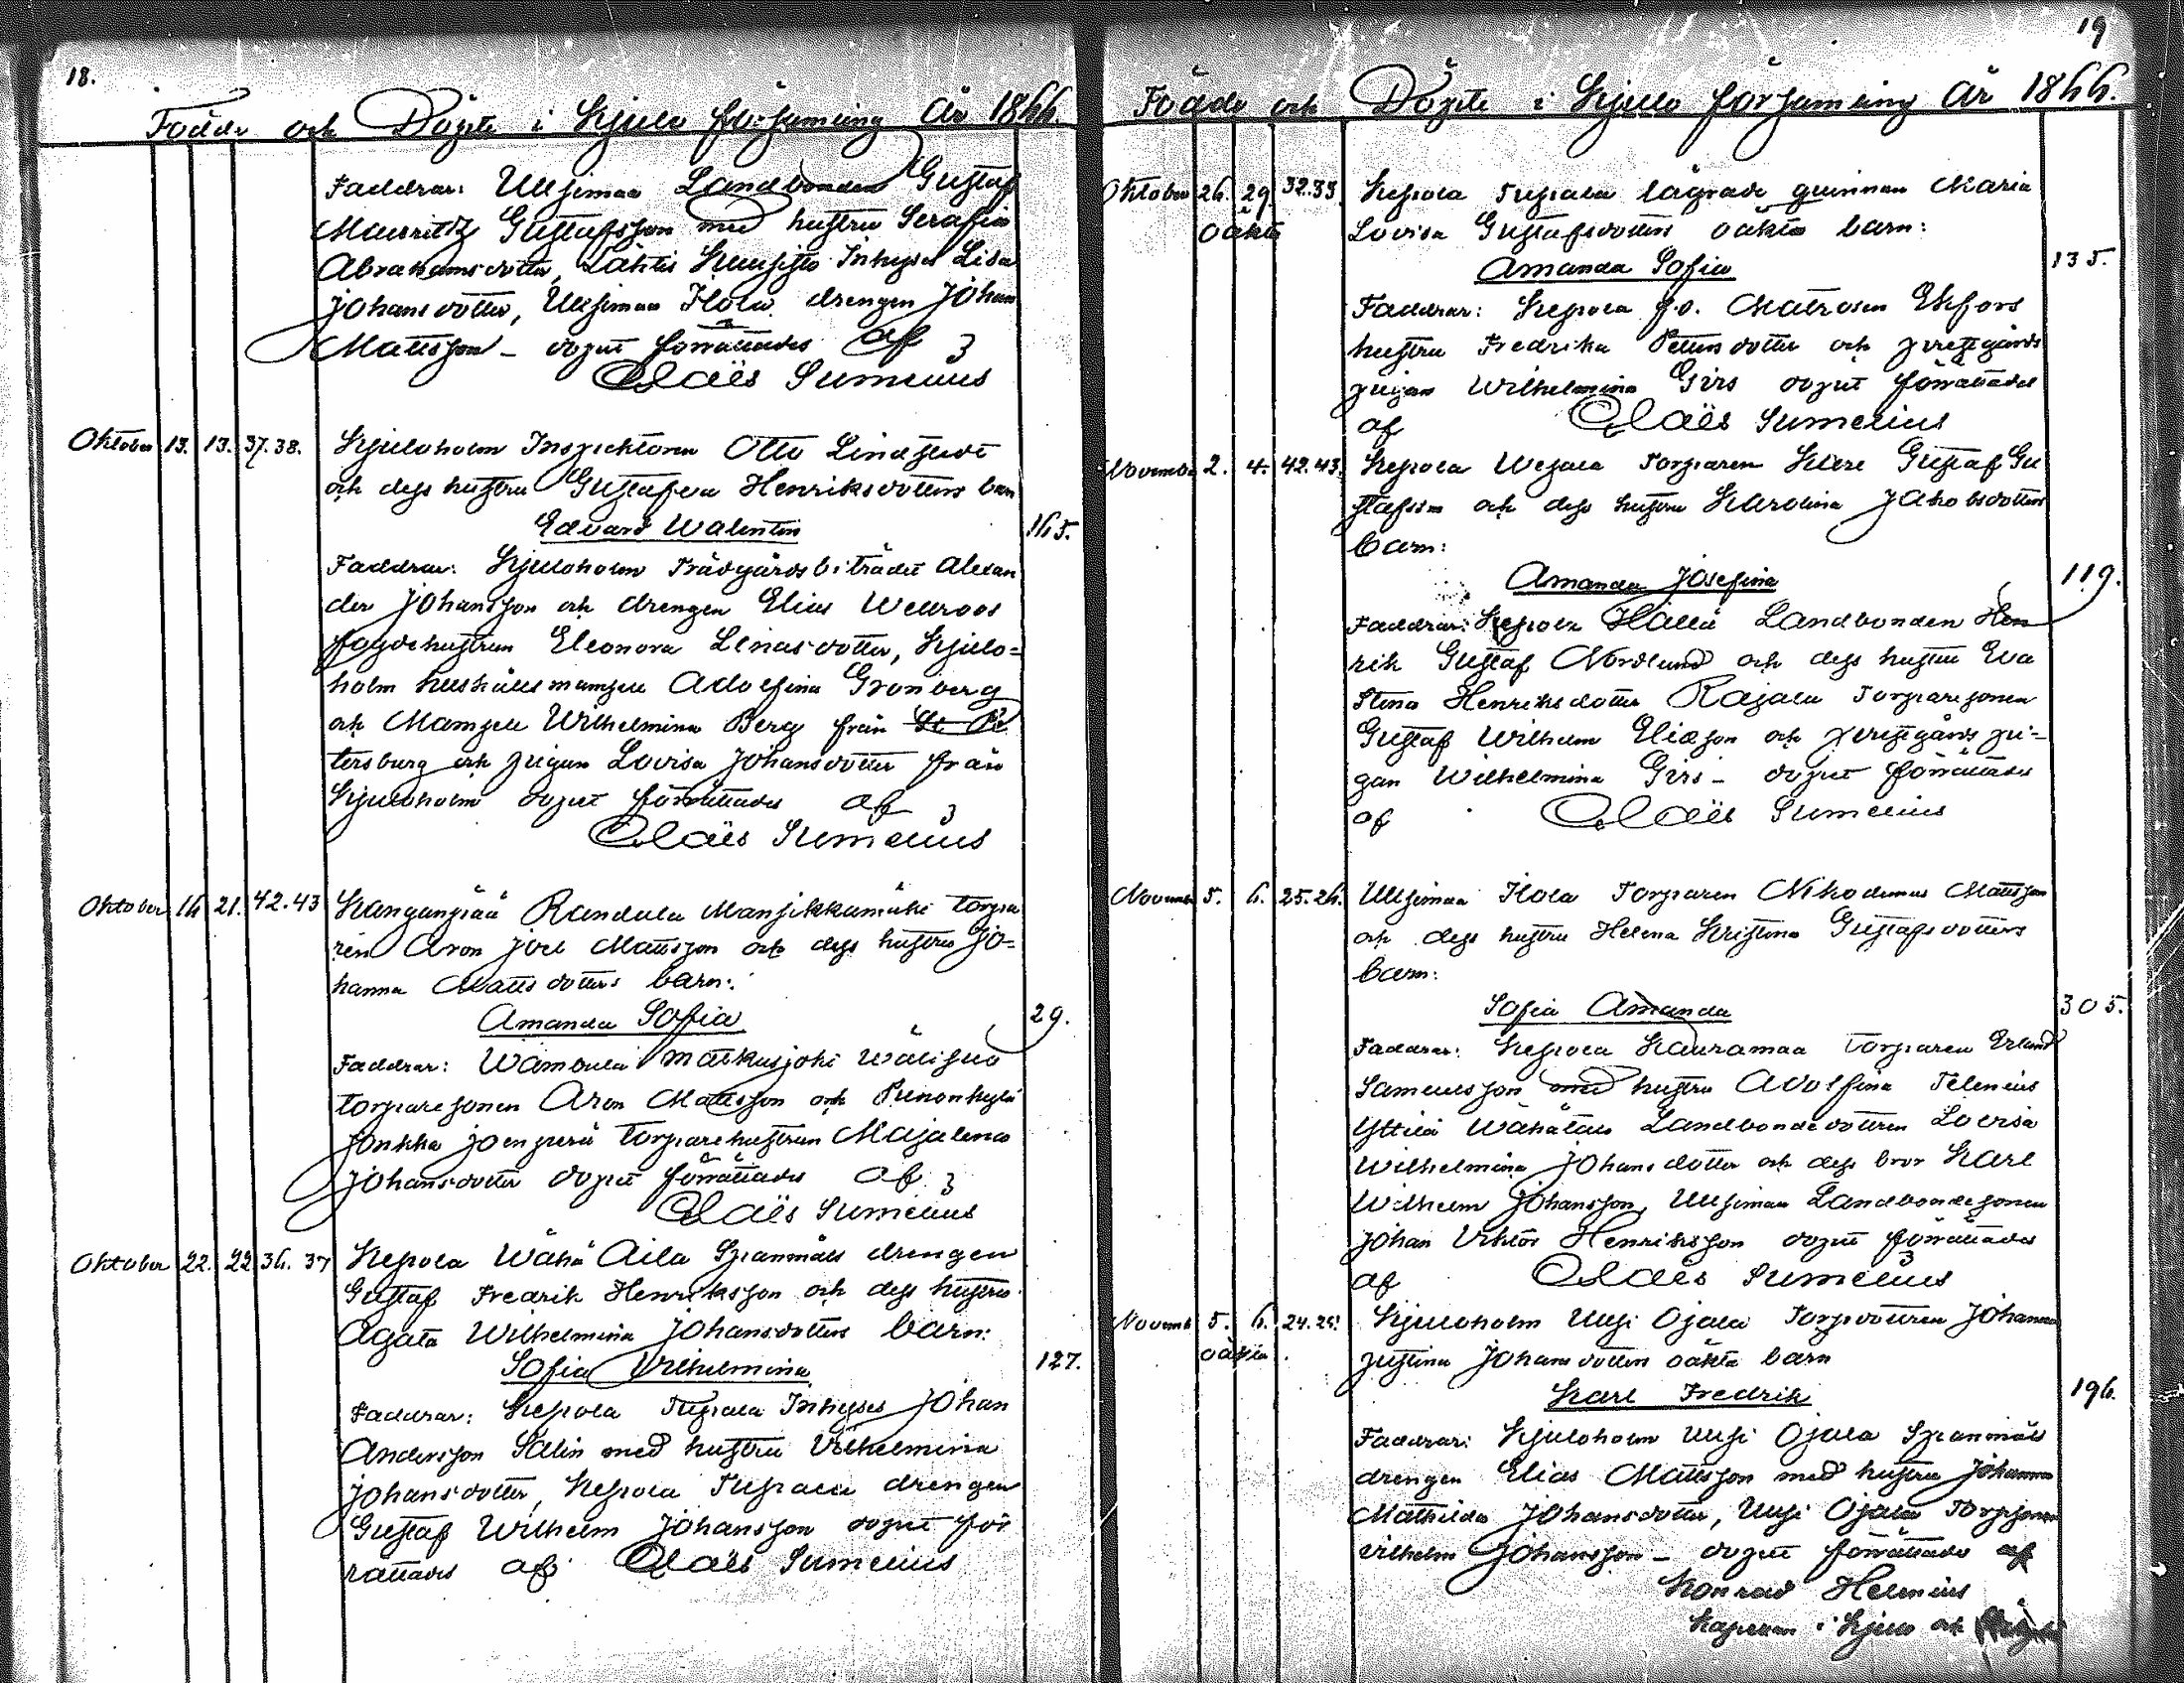 18.
Födde och Döpte i Kjulo församling År 1866.
Faddrar: Uusimaa Landbonden Gustaf
Mauritz Gustafsson med hustru Serafia
Abrahamsdotter, Lähtis Inhyses Lisa
Johansdotter, Uusimaa Ilola drengen Johan
Mattsson – dopet förrättades af
Claës Sumelius
Oktober 13. 13. 37.38. Kjuloholm Inspektoren Otto Lindstedt
och dess hustru Gustafva Henriksdotters barn
Edvard Walentin 165.
Faddrar: Kjuloholm Trädgårdsbiträdet Alexan
der Johansson och drengen Elias Wedroos
fogdehustrun Eleonora Lenasdotter, Kjulo=
holm hushållsmamsell Adolfina Grönberg
och Mamsell Wilhelmina Berg från St. Pe
tersburg och pigan Lovisa Johansdotter från
Kjuloholm dopet förrättades af
Claës Sumelius
Oktober 16 21. 42.43 Kanganpää Randula Mansikkamäki torpa
ren Aron Joel Mattsson och dess hustru Jo=
hanna Mattsdotters barn:
Amanda Sofia 29.
Faddrar: Wambula Matkusjoki Wälisuo
torparesonen Aron Mattsson och Punonkylä
Jonkka Joenperä torparehustrun Majalena
Johansdotter dopet förrättades af
Claës Sumelius
Oktober 22. 22 36. 37 Kepola Wähä Aila Spanmåls drengen
Gustaf Fredrik Henriksson och dess hustru
Agata Wilhelmina Johansdotters barn:
Sofia Vilhelmina 127.
Faddrar: Kepola Tupala Inhyses Johan
Andersson Salin med hustru Vilhelmina
Johansdotter, Kepola Tupala drengen
Gustaf Wilhelm Johansson dopet för
rättades af Claës Sumelius
19
Födde och Döpte i Kjulo församling År 1866.
Oktober 26. 29 32.33. Kepola Tupala lägrade qvinnan Maria
oäkta Lovisa Gustafsdotters oäkta barn:
Amanda Sofia 135.
Faddrar: Kepola f.d. Matrosen Ekfors
hustru Fredrika Pettersdotter och prestgårds
pigan Wilhelmina Girs dopet förrättades
af Claës Sumelius
November 2. 4. 42.43. Kepola Torparen Gustaf Gu
stafsson och dess hustru Karolina Jakobsdotters
barn:
Amanda Josefina 119.
Faddrar: Kepola Hallä Landbonden Hen
rik Gustaf Nordlund och dess hustru Eva
Stina Henriksdotter Rajala Torparesonen
Gustaf Wilhelm Eliasson och prestgårds pi=
gan Wilhelmina Girs – dopet förrättades
af Claës Sumelius
November 5. 6. 25.26. Uusimaa Ilola Torparen Nikodemus Mattsson
och dess hustru Helena Kristina Gustafsdotters
barn:
Sofia Amanda 305.
Faddrar: Kepola Kauramaa torparen Erland
Samuelsson med hustru Adolfina Telenius
Yttilä Wähätalo Landbondedottren Lovisa
Wilhelmina Johansdotter och dess bror Karl
Wilhelm Johansson, Uusimaa Landbondesonen
Johan Viktor Henriksson dopet förrättades
af Claës Sumelius
Novemb 5. 6. 24.25. Kjuloholm Uusi Ojala Torpdottren Johanna
oäkta Justina Johansdotters oäkta barn
Karl Fredrik 196.
Faddrar: Kjuloholm Uusi Ojala Spanmåls
drengen Elias Mattsson med hustru Johanna
Mathilda Johansdotter, Uusi Ojala Torpsonen
Vilhelm Johansson – dopet förrättades af
Konrad Helenius
Kapellan i Kjulo och